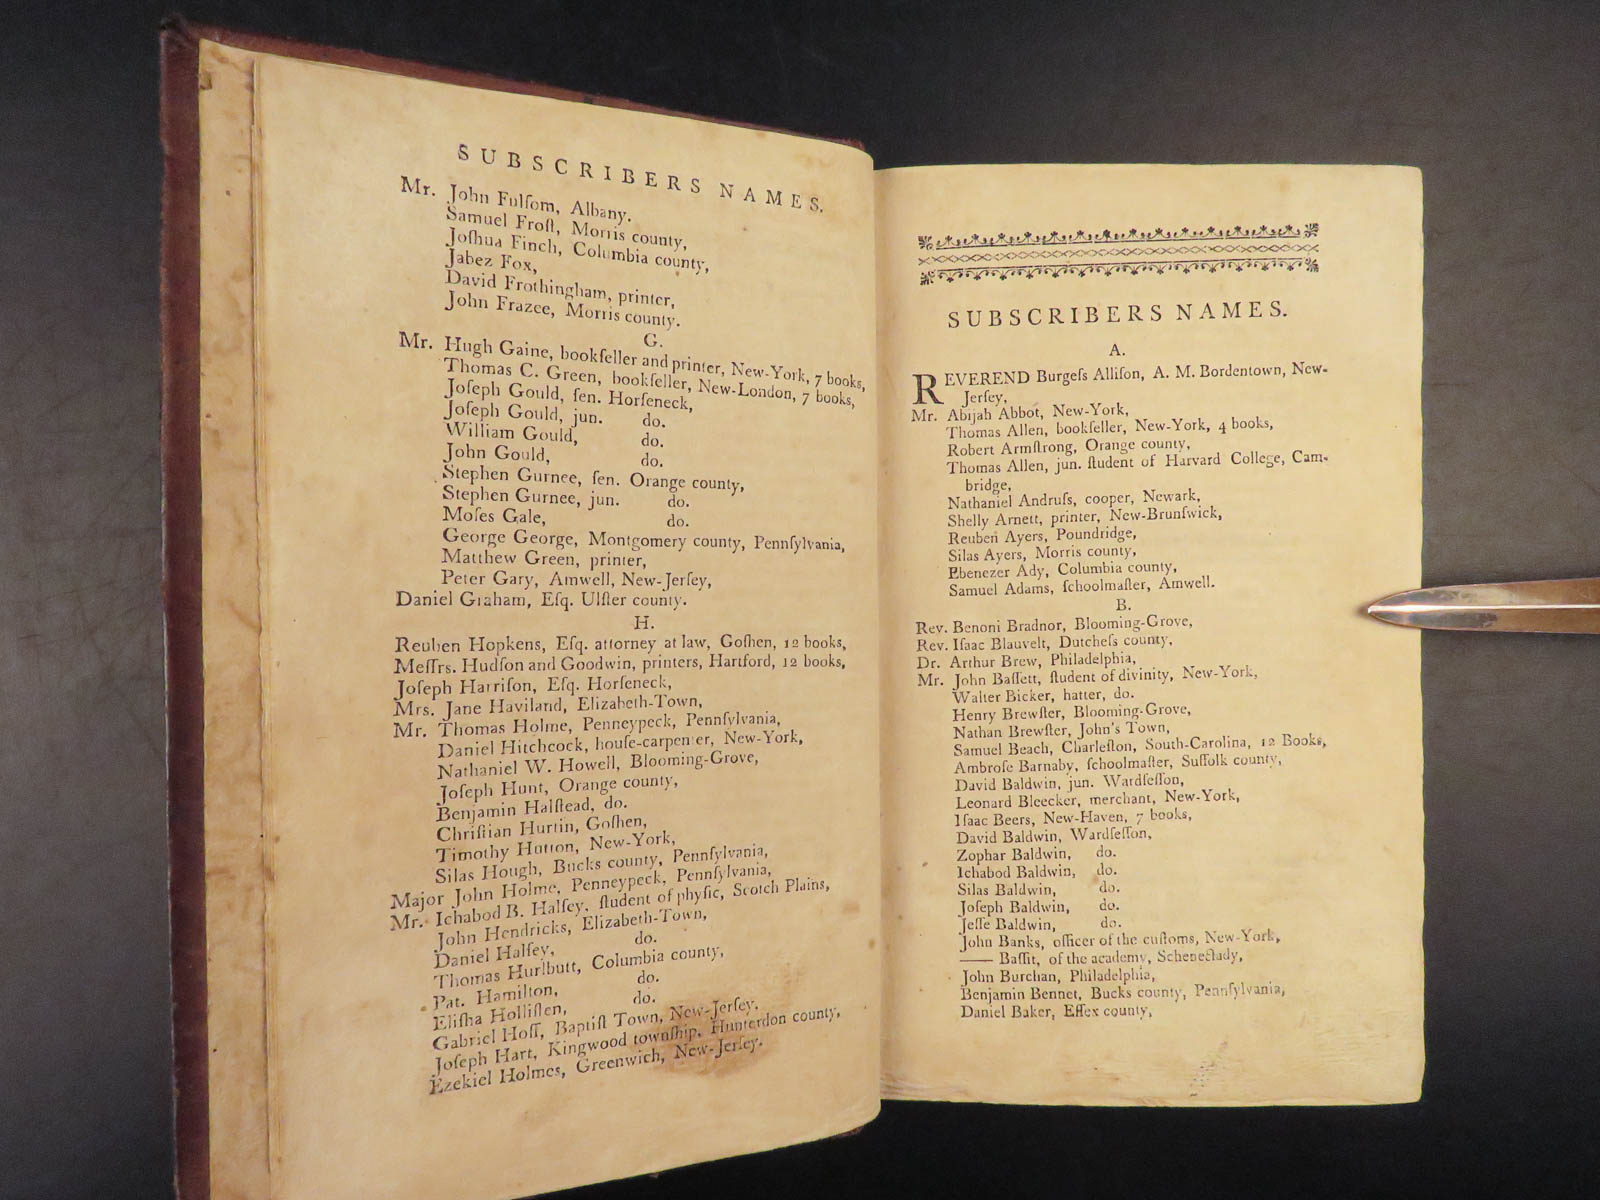 SUBSCRIBERS NAMES.
Mr. John Fulſom, Albany.
Samuel Froſt, Morris county,
Joſhua Finch, Columbia county,
Jabez Fox,
David Frothingham, printer,
John Frazee, Morris county.
G.
Mr. Hugh Gaine, bookſeller and printer, New-York, 7 books,
Thomas C. Green, bookſeller, New-London, 7 books,
Joſeph Gould, ſen. Horſeneck,
Joſeph Gould, jun. do.
William Gould, do.
John Gould, do.
Stephen Gurnee, ſen. Orange county,
Stephen Gurnee, jun. do.
Moſes Gale, do.
George George, Montgomery county, Pennſylvania,
Matthew Green, printer,
Peter Gary, Amwell, New-Jerſey,
Daniel Graham, Eſq. Ulſter county.
H.
Reuben Hopkens, Eſq. attorney at law, Goſhen, 12 books,
Meſſrs. Hudſon and Goodwin, printers, Hartford, 12 books,
Joſeph Harriſon, Eſq. Horſeneck,
Mrs. Jane Haviland, Elizabeth-Town,
Mr. Thomas Holme, Penneypeck, Pennſylvania,
Daniel Hitchcock, houſe-carpenter, New-York,
Nathaniel W. Howell, Blooming-Grove,
Joſeph Hunt, Orange county,
Benjamin Halſtead, do.
Chriſtian Hurtin, Goſhen,
Timothy Hutton, New-York,
Silas Hough, Bucks county, Pennſylvania,
Major John Holme, Penneypeck, Pennſylvania,
Mr. Ichabod B. Halſey, ſtudent of phyſic, Scotch Plains,
John Hendricks, Elizabeth-Town,
Daniel Halſey, do.
Thomas Hurlbutt, Columbia county,
Pat. Hamilton, do.
Eliſha Holliſten, do.
Gabriel Hoff, Baptiſt Town, New-Jerſey.
Joſeph Hart, Kingwood townſhip, Hunterdon county,
Ezekiel Holmes, Greenwich, New-Jerſey.
SUBSCRIBERS NAMES.
A.
REVEREND Burgeſs Alliſon, A. M. Bordentown, New-
Jerſey,
Mr. Abijah Abbot, New-York,
Thomas Allen, bookſeller, New-York, 4 books,
Robert Armſtrong, Orange county,
Thomas Allen, jun. ſtudent of Harvard College, Cam-
bridge,
Nathaniel Andruſs, cooper, Newark,
Shelly Arnett, printer, New-Brunſwick,
Reuben Ayers, Poundridge,
Silas Ayers, Morris county,
Ebenezer Ady, Columbia county,
Samuel Adams, ſchoolmaſter, Amwell.
B.
Rev. Benoni Bradnor, Blooming-Grove,
Rev. Iſaac Blauvelt, Dutcheſs county,
Dr. Arthur Brew, Philadelphia,
Mr. John Baſſett, ſtudent of divinity, New-York,
Walter Bicker, hatter, do.
Henry Brewſter, Blooming-Grove,
Nathan Brewſter, John's Town,
Samuel Beach, Charleſton, South-Carolina, 12 Books,
Ambroſe Barnaby, ſchoolmaſter, Suffolk county,
David Baldwin, jun. Wardſeſſon,
Leonard Bleecker, merchant, New-York,
Iſaac Beers, New-Haven, 7 books,
David Baldwin, Wardſeſſon,
Zophar Baldwin, do.
Ichabod Baldwin, do.
Silas Baldwin, do.
Joſeph Baldwin, do.
Jeſſe Baldwin, do.
John Banks, officer of the cuſtoms, New-York,
—— Baſſit, of the academy, Schenectady,
John Burchan, Philadelphia,
Benjamin Bennet, Bucks county, Pennſylvania,
Daniel Baker, Eſſex county,